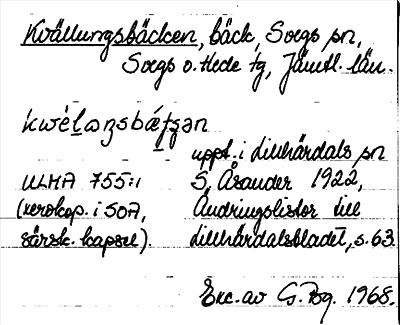 Kvällungsbäcken, bäck, Svegs sn,
Svegs o. Hede tg, Jämtl. län.
kwèlaŋsbætʂən
uppt. i Lillhärdals sn
ULMA 755:1 S. Åsander 1922,
(xerokop. i SOA, Ändringslistor till
särsk. kapsel). Lillhärdalsbladet, s. 63.
Exc. av G. Bg. 1968.